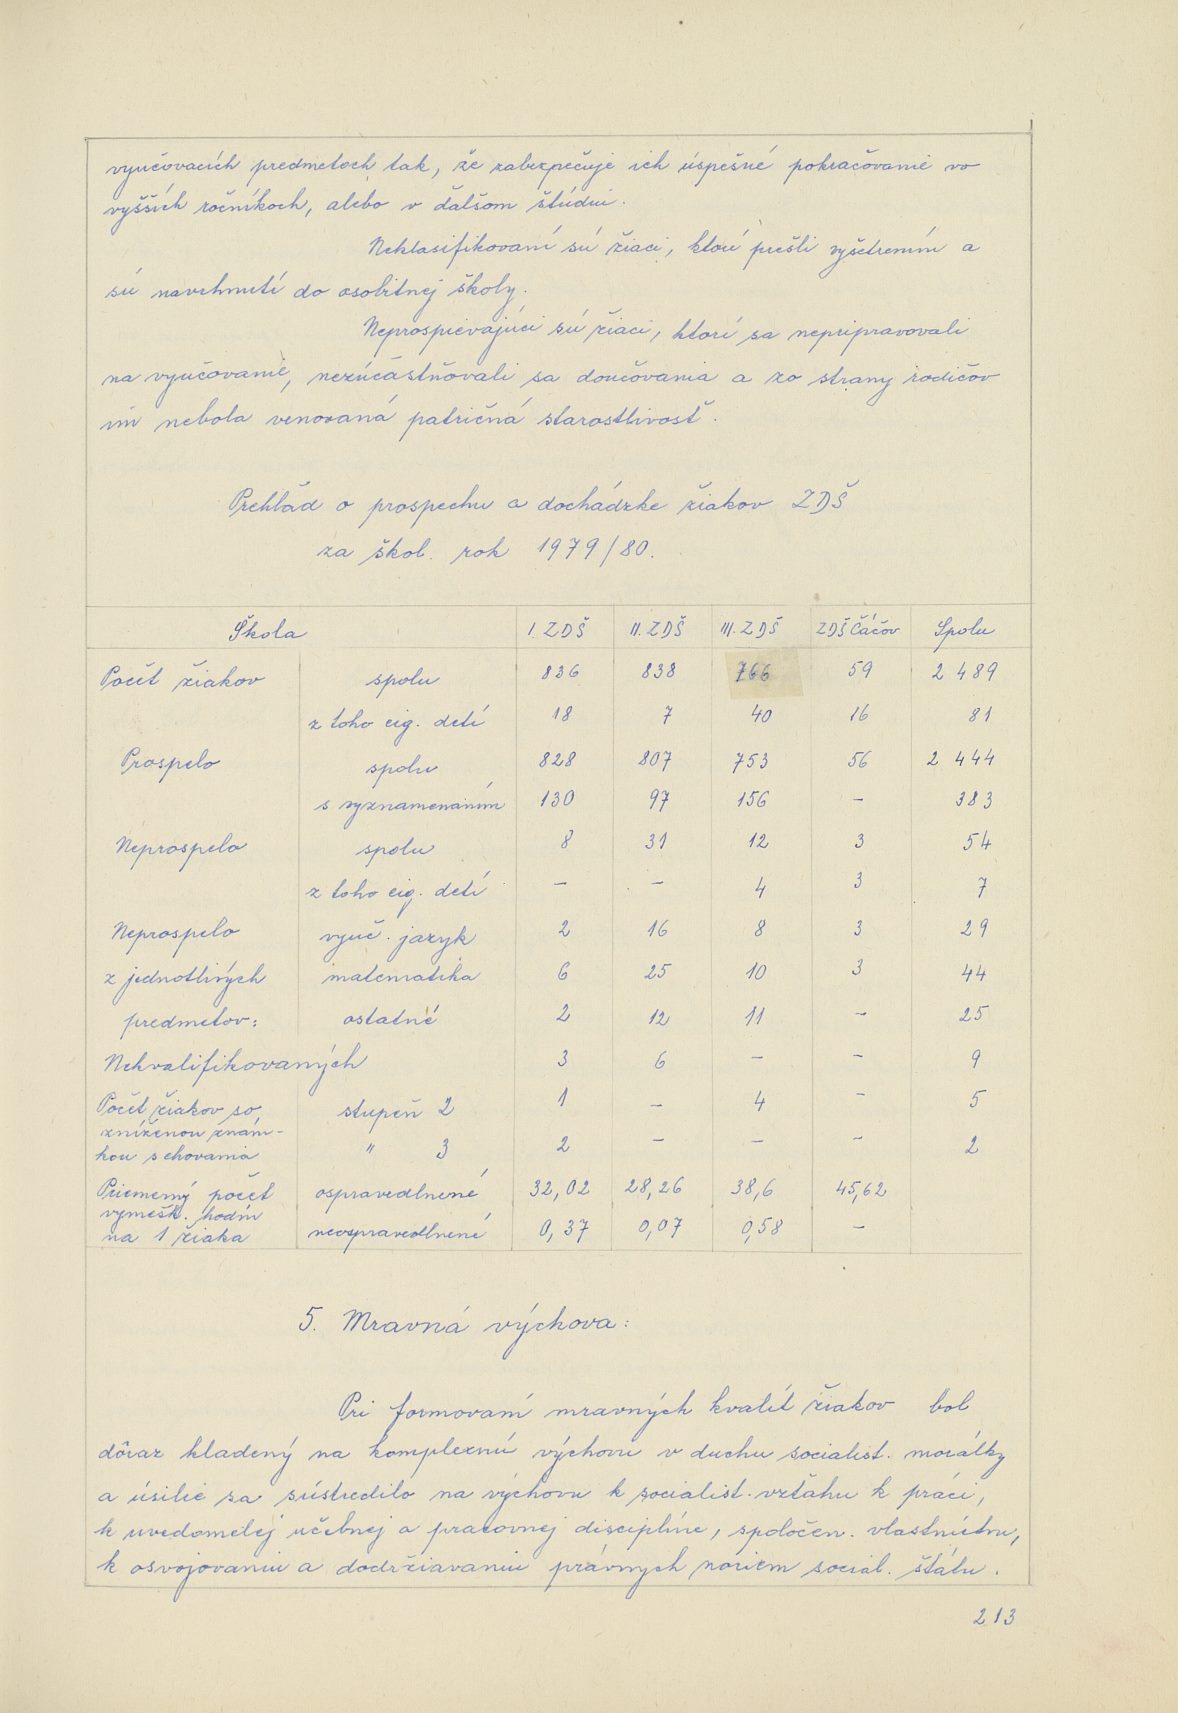 vyučovacích predmetoch tak, že zabezpečuje ich úspešné pokračovanie vo
vyšších ročníkoch, alebo v ďalšom štúdiu.
Neklasifikovaní sú žiaci, ktorí prešli vyšetrením a
sú navrhnutí do osobitnej školy.
Neprospievajúci sú žiaci, ktorí sa nepripravovali
na vyučovanie, nezúčastňovali sa doučovania a zo strany rodičov
im nebola venovaná patričná starostlivosť.
Prehľad o prospechu a dochádzke žiakov ZDŠ
za škol. rok 1979/80.
Škola I. ZDŠ II. ZDŠ III. ZDŠ ZDŠ Čáčov Spolu
Počet žiakov spolu 836 838 766 59 2 489
z toho cig. detí 18 7 40 16 81
Prospelo spolu 828 807 753 56 2 444
s vyznamenaním 130 97 156 – 383
Neprospelo spolu 8 31 12 3 54
z toho cig. detí – – 4 3 7
Neprospelo vyuč. jazyk 2 16 8 3 29
z jednotlivých matematika 6 25 10 3 44
predmetov: ostatné 2 12 11 – 25
Nekvalifikovaných 3 6 – – 9
Počet žiakov so stupeň 2 1 – 4 – 5
zníženou znám-
kou z chovania " 3 2 – – – 2
Priemerný počet ospravedlnené 32,02 28,26 38,6 45,62
vymešk. hodín
na 1 žiaka neospravedlnené 0,37 0,07 0,58 –
5. Mravná výchova:
Pri formovaní mravných kvalít žiakov bol
dôraz kladený na komplexnú výchovu v duchu socialist. morálky
a úsilie sa sústredilo na výchovu k socialist. vzťahu k práci,
k uvedomelej učebnej a pracovnej disciplíne, spoločen. vlastníctvu,
k osvojovaniu a dodržiavaniu právnych noriem social. štátu.
213